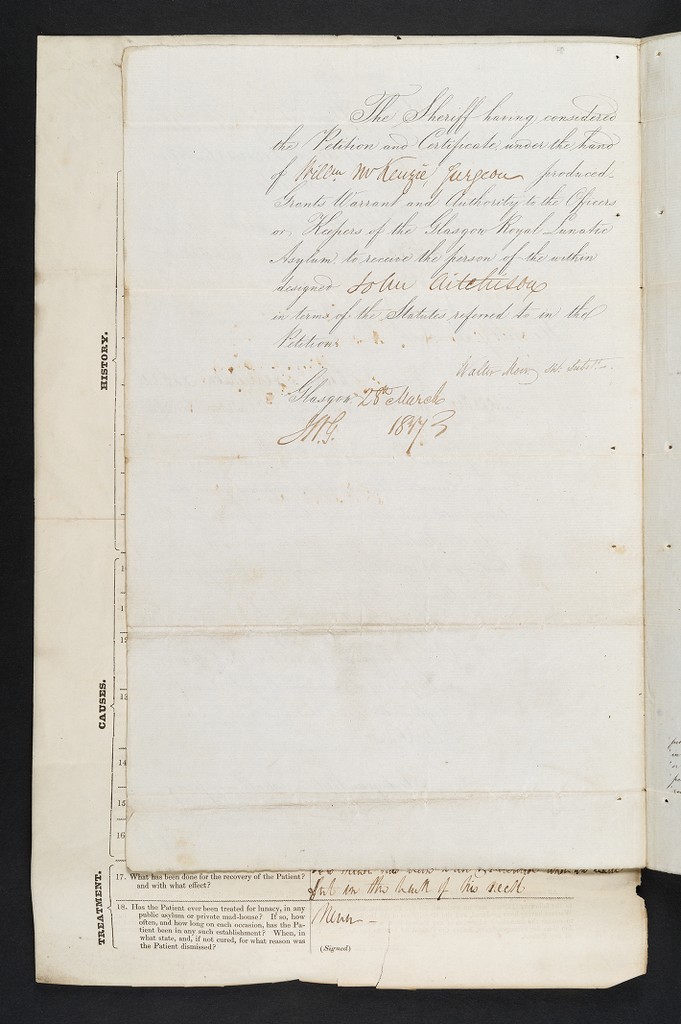 The Sheriff having considered
the Petition and Certificate under the hand
of Willm McKenzie, Surgeon produced
Grants Warrant and Authority to the Officers
or Keepers of the Glasgow Royal Lunatic
Asylum to receive the person of the within
designed John Aitchison
in terms of the Statutes referred to in the
Petition
Walter Moir
Glasgow 28th March
1843
HISTORY.
CAUSES.
12
13
14
15
16
TREATMENT.
17. What has been done for the recovery of the Patient?
and with what effect?
put in the back of his neck
18. Has the Patient ever been treated for lunacy, in any
public asylum or private mad-house? If so, how
often, and how long on each occasion, has the Pa-
tient been in any such establishment? When, in
what state, and, if not cured, for what reason was
the Patient dismissed?
Never –
(Signed)